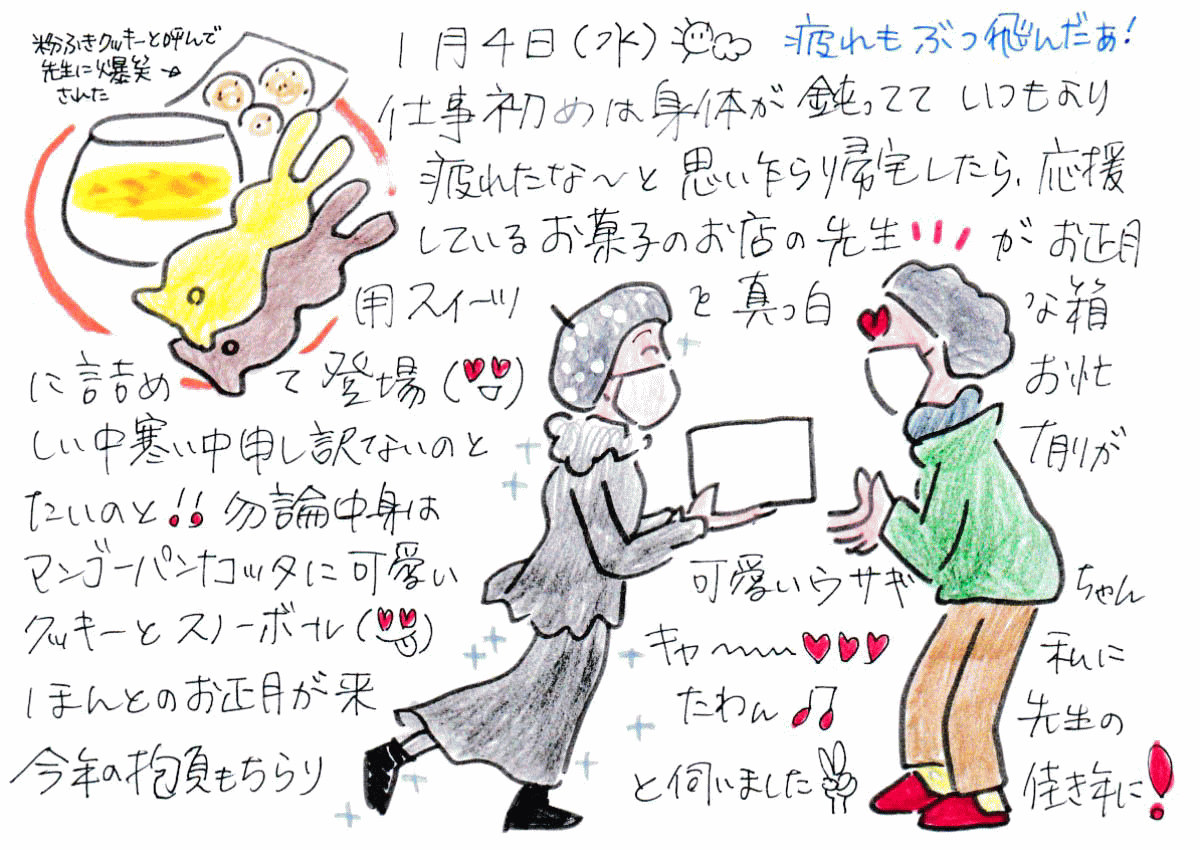 粉ふきクッキーと呼んで
先生に爆笑
された
1月4日(水) 疲れもぶっ飛んだぁ!
仕事初めは身体が鈍ってていつもより
疲れたな〜と思い乍らり帰宅したら、応援
しているお菓子のお店の先生が お正月
用スイーツ を真っ白 な箱
に詰め て登場 お忙
しい中寒い中申し訳ないのと 有りが
たいのと!! 勿論中身は
マンゴーパンナコッタに可愛い 可愛いウサギ ちゃん
クッキーとスノーボール キャ〜 私に
ほんとのお正月が来 たわん♫ 先生の
今年の抱負もちらり と伺いました 佳き年に!